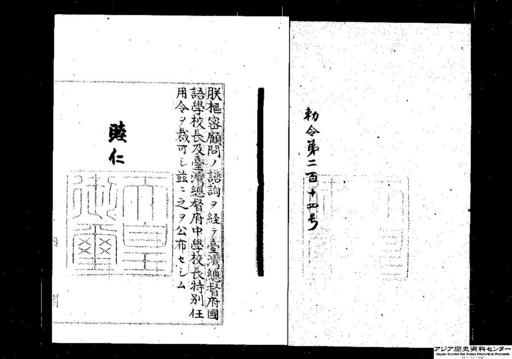 勅令第二百十四号
朕樞密顧問ノ諮詢ヲ経テ臺灣總督府國
語學校長及臺灣總督府中學校長特別任
用令ヲ裁可シ茲ニ之ヲ公布セシム
睦仁
天皇
御璽
アジア歴史資料センター
Japan Center for Asian Historical Records